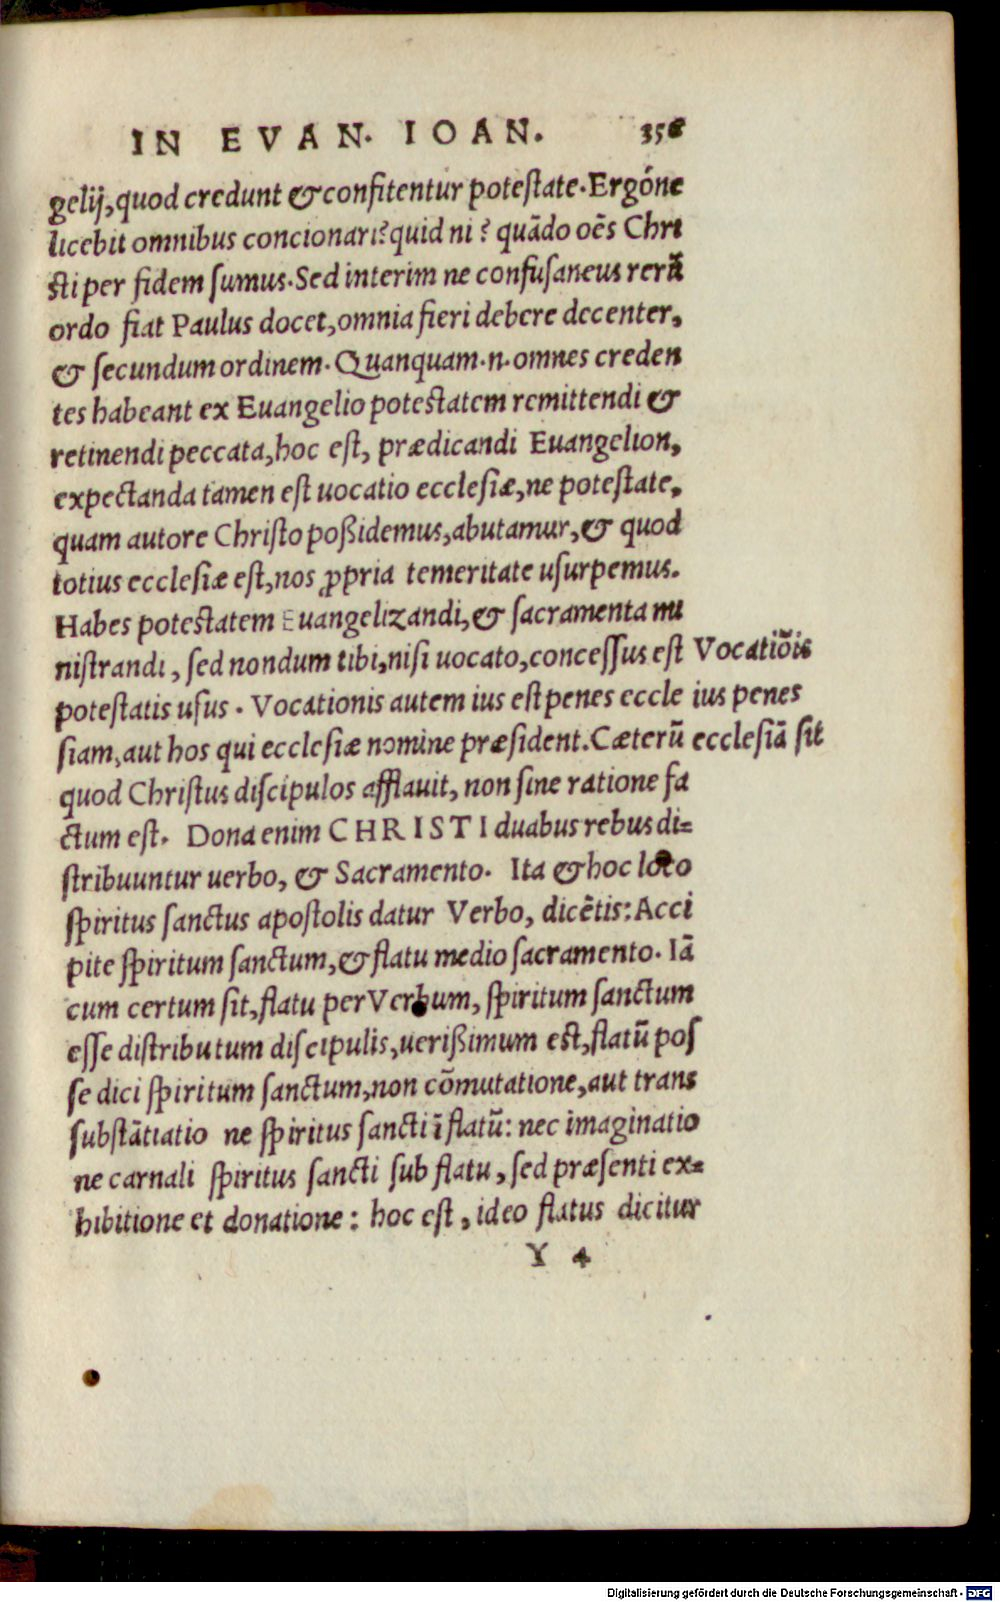 IN EVAN. IOAN.
gelij, quod credunt & confitentur potestate. Ergóne
licebit omnibus concionari? quid ni? quādo oēs Chri
sti per fidem sumus. Sed interim ne confusaneus rerū
ordo fiat Paulus docet, omnia fieri debere decenter,
& secundum ordinem. Quanquam .n. omnes creden
tes habeant ex Euangelio potestatem remittendi &
retinendi peccata, hoc est, prædicandi Euangelion,
expectanda tamen est uocatio ecclesiæ, ne potestate,
quam autore Christo poßidemus, abutamur, & quod
totius ecclesiæ est, nos ꝓpria temeritate usurpemus.
Habes potestatem Euangelizandi, & sacramenta mi
nistrandi, sed nondum tibi, nisi uocato, concessus est
potestatis usus. Vocationis autem ius est penes eccle
siam, aut hos qui ecclesiæ nomine præsident. Cæterū
quod Christus discipulos afflauit, non sine ratione fa
ctum est. Dona enim CHRISTI duabus rebus di=
stribuuntur uerbo, & Sacramento. Ita & hoc loco
spiritus sanctus apostolis datur Verbo, dicētis: Acci
pite spiritum sanctum, & flatu medio sacramento. Iā
cum certum sit, flatu per Verbum, spiritum sanctum
esse distributum discipulis, uerißimum est, flatū pos
se dici spiritum sanctum, non cōmutatione, aut trans
substātiatio ne spiritus sancti ī flatū: nec imaginatio
ne carnali spiritus sancti sub flatu, sed præsenti ex=
hibitione et donatione: hoc est, ideo flatus dicitur
Y 4
Vocatiōis
ius penes
ecclesiā sit
Digitalisierung gefördert durch die Deutsche Forschungsgemeinschaft - DFG